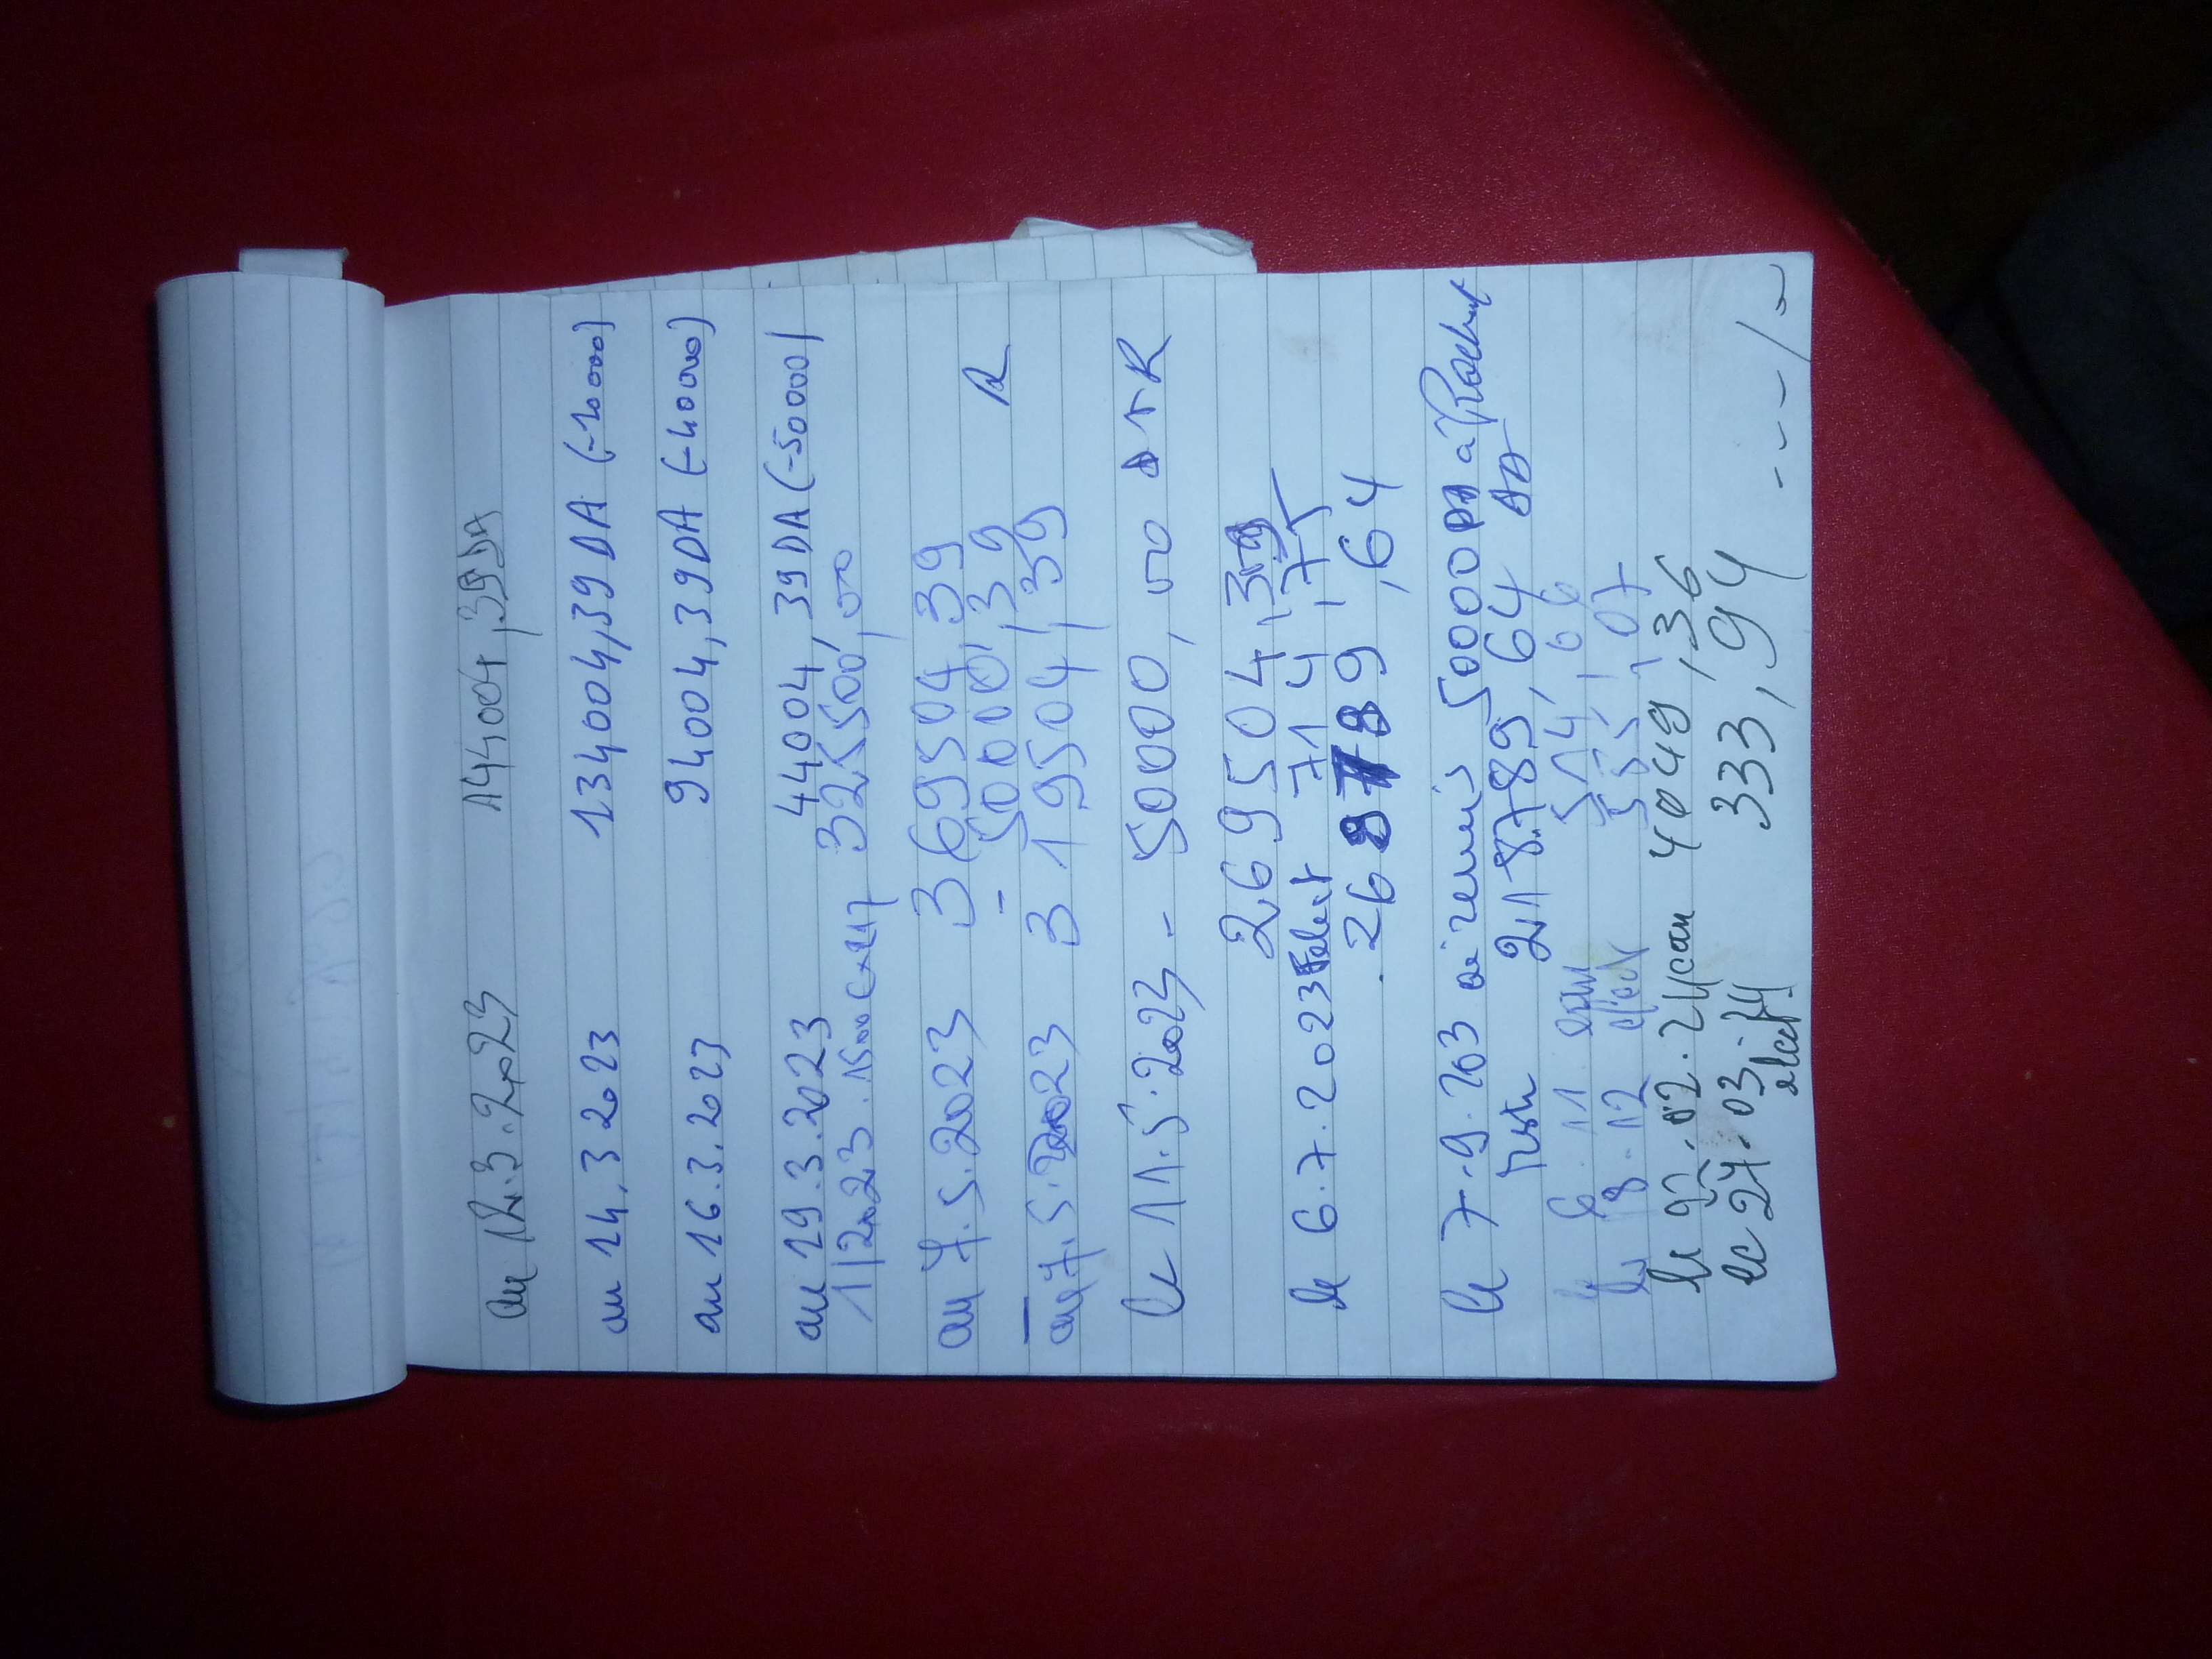 au 12.3.2023 144004,39 DA
au 14.3 2023 134004,39 DA (-10000)
au 16.3.2023 94004,39 DA (-40000)
au 19.3.2023 44004,39 DA (-50000)
325500,00
au 7.5.2023 369504,39
- 50000,39 R
au 7.5.2023 319504,39
le 11.5.2023 - 50000,00
269504,39
le 6.7.2023 714,75
268789,64
le 7.9.203 ai remis 50000 DA à Rachid
reste 218789,64 DA
le 6.11 eau 514,06
le 8.12 elect 555,07
le 05.02.24 eau 4049,36
le 24.03.24 333,94
elect